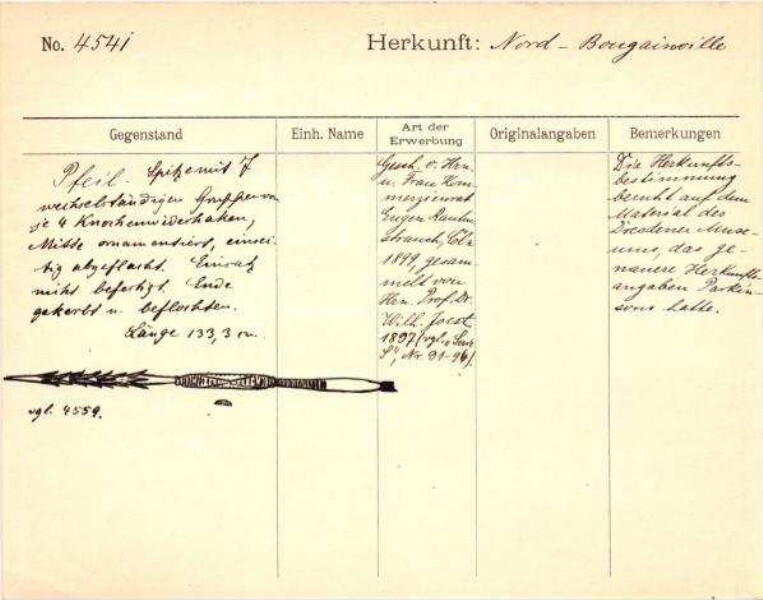 No. 4541
Herkunft: Nord - Bougainville
Gegenstand
Einh. Name
Art der
Erwerbung
Originalangaben
Bemerkungen
Pfeil. Spitze mit 7
wechselständigen Gruppen von
je 4 Knochenwiderhaken,
Mitte ornamentiert, einsei-
tig abgeflacht. Einsatz
nicht befestigt. Ende
gekerbt u. beflochten.
Länge 133,3 cm.
vgl. 4559.
Gesch. v. Hrn.
u. Frau Kom-
merzienrat
Eugen Rauten-
strauch, Cöln
1899, gesam-
melt von
Hrn. Prof. Dr.
Wilh. Joest
1897 (vgl.
Nr. 91-96).
Die Herkunfts-
bestimmung
beruht auf dem
Material des
Dresdener Muse-
ums, das ge-
nauere Herkunfts-
angaben Parkin-
sons hatte.